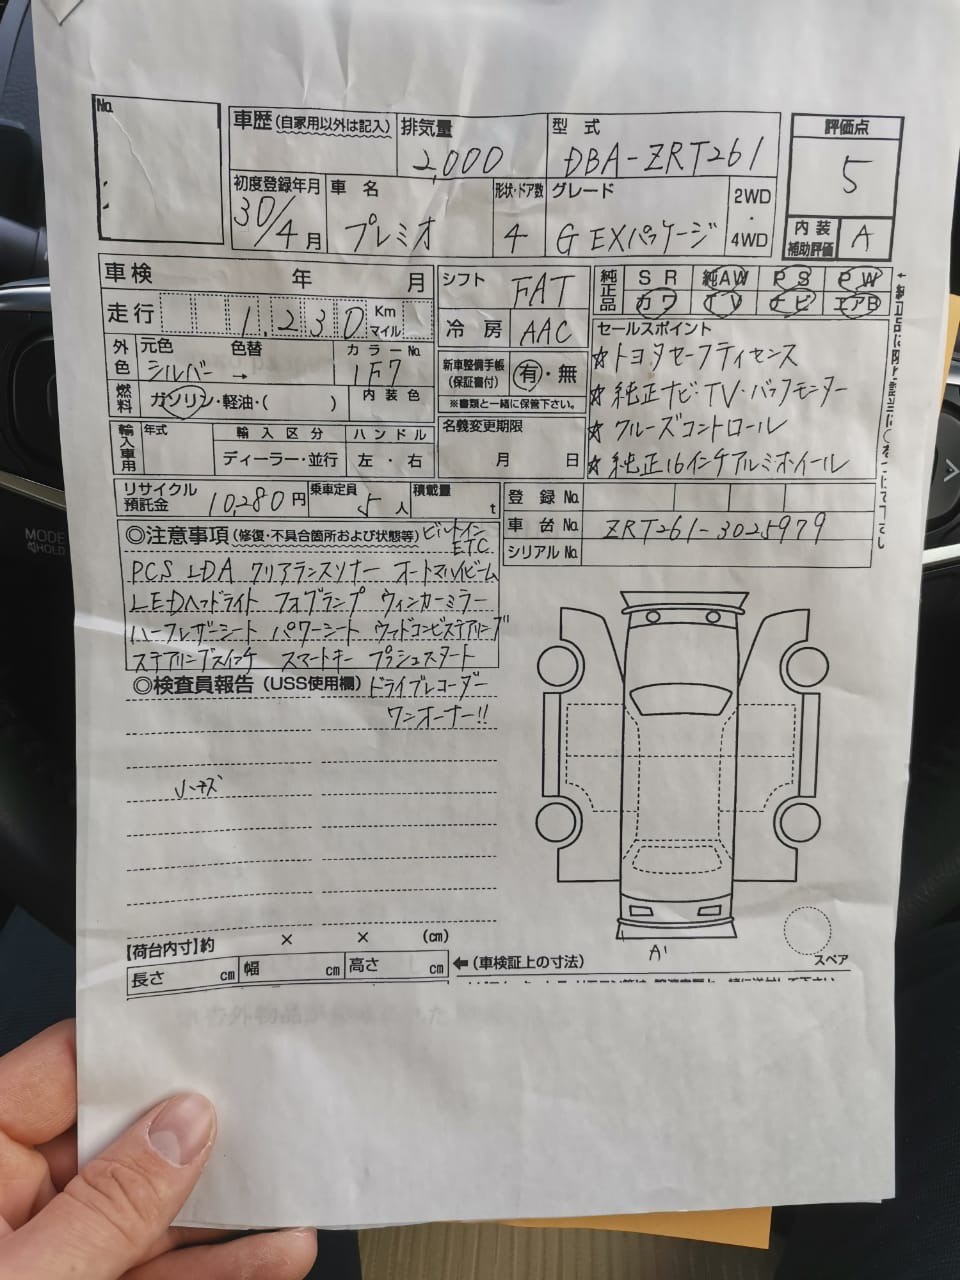 No.
車歴(自家用以外は記入)
排気量
2,000
型式
DBA-ZRT261
評価点
5
内装補助評価 A
初度登録年月
30/4月
車名
プレミオ
形状・ドア数
4
グレード
G EXパッケージ
2WD・4WD
車検 年 月
シフト FAT
純正品 SR 純AW PS PW
カワ TV ナビ エアB
走行 1,230 Km マイル
冷房 AAC
セールスポイント
☆トヨタセーフティセンス
☆純正ナビ・TV・バックモニター
☆クルーズコントロール
☆純正16インチアルミホイール
外色 元色 色替 カラーNo.
シルバー → 1F7
新車整備手帳(保証書付) 有・無
※書類と一緒に保管下さい。
燃料 ガソリン・軽油・( )
内装色
名義変更期限
月 日
輸入車用 年式 輸入区分 ハンドル
ディーラー・並行 左・右
リサイクル預託金 10,280円
乗車定員 5人
積載量 t
登録No.
車台No. ZRT261-3025979
シリアルNo.
◎注意事項(修復・不具合箇所および状態等) ビルトインETC
PCS LDA クリアランスソナー オートマハイビーム
LEDヘッドライト フォグランプ ウィンカーミラー
ハーフレザーシート パワーシート ウッドコンビステアリング
ステアリングスイッチ スマートキー プッシュスタート
◎検査員報告(USS使用欄) ドライブレコーダー
ワンオーナー!!
小キズ
A'
スペア
【荷台内寸】約 × × (cm)
長さ cm 幅 cm 高さ cm
←(車検証上の寸法)
MODE
HOLD